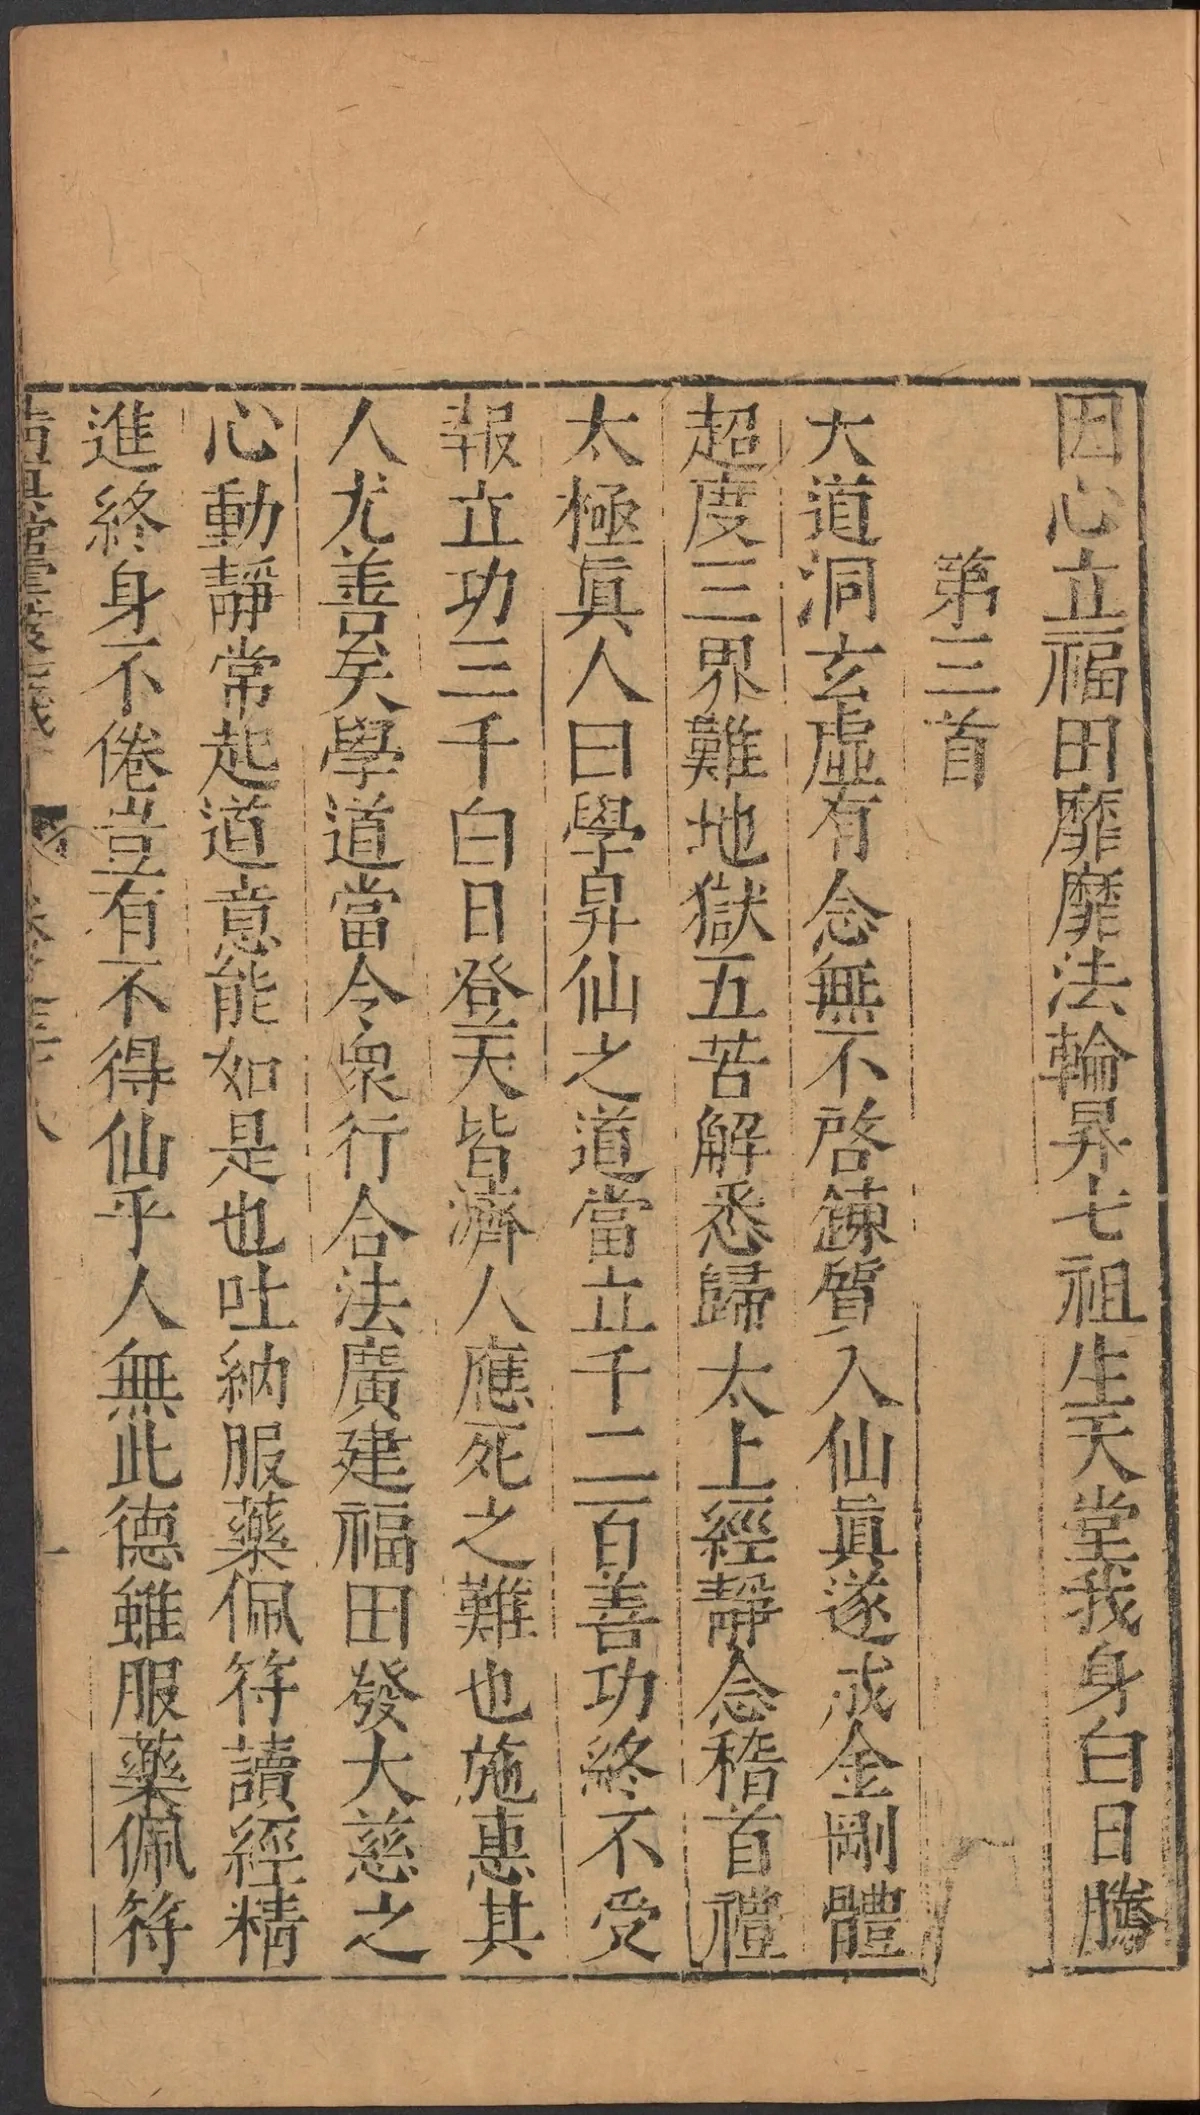 因心立福田靡靡法輪昇七祖生天堂我身白日騰
第三首
大道洞玄虛有念無不啓鍊質入仙眞遂成金剛體
超度三界難地獄五苦解悉歸太上經靜念稽首禮
太極眞人曰學昇仙之道當立千二百善功終不受
報立功三千白日登天皆濟人應死之難也施惠其
人尤善矣學道當令衆行合法廣建福田發大慈之
心動靜常起道意能如是也吐納服藥佩符讀經精
進終身不倦豈有不得仙乎人無此德雖服藥佩符